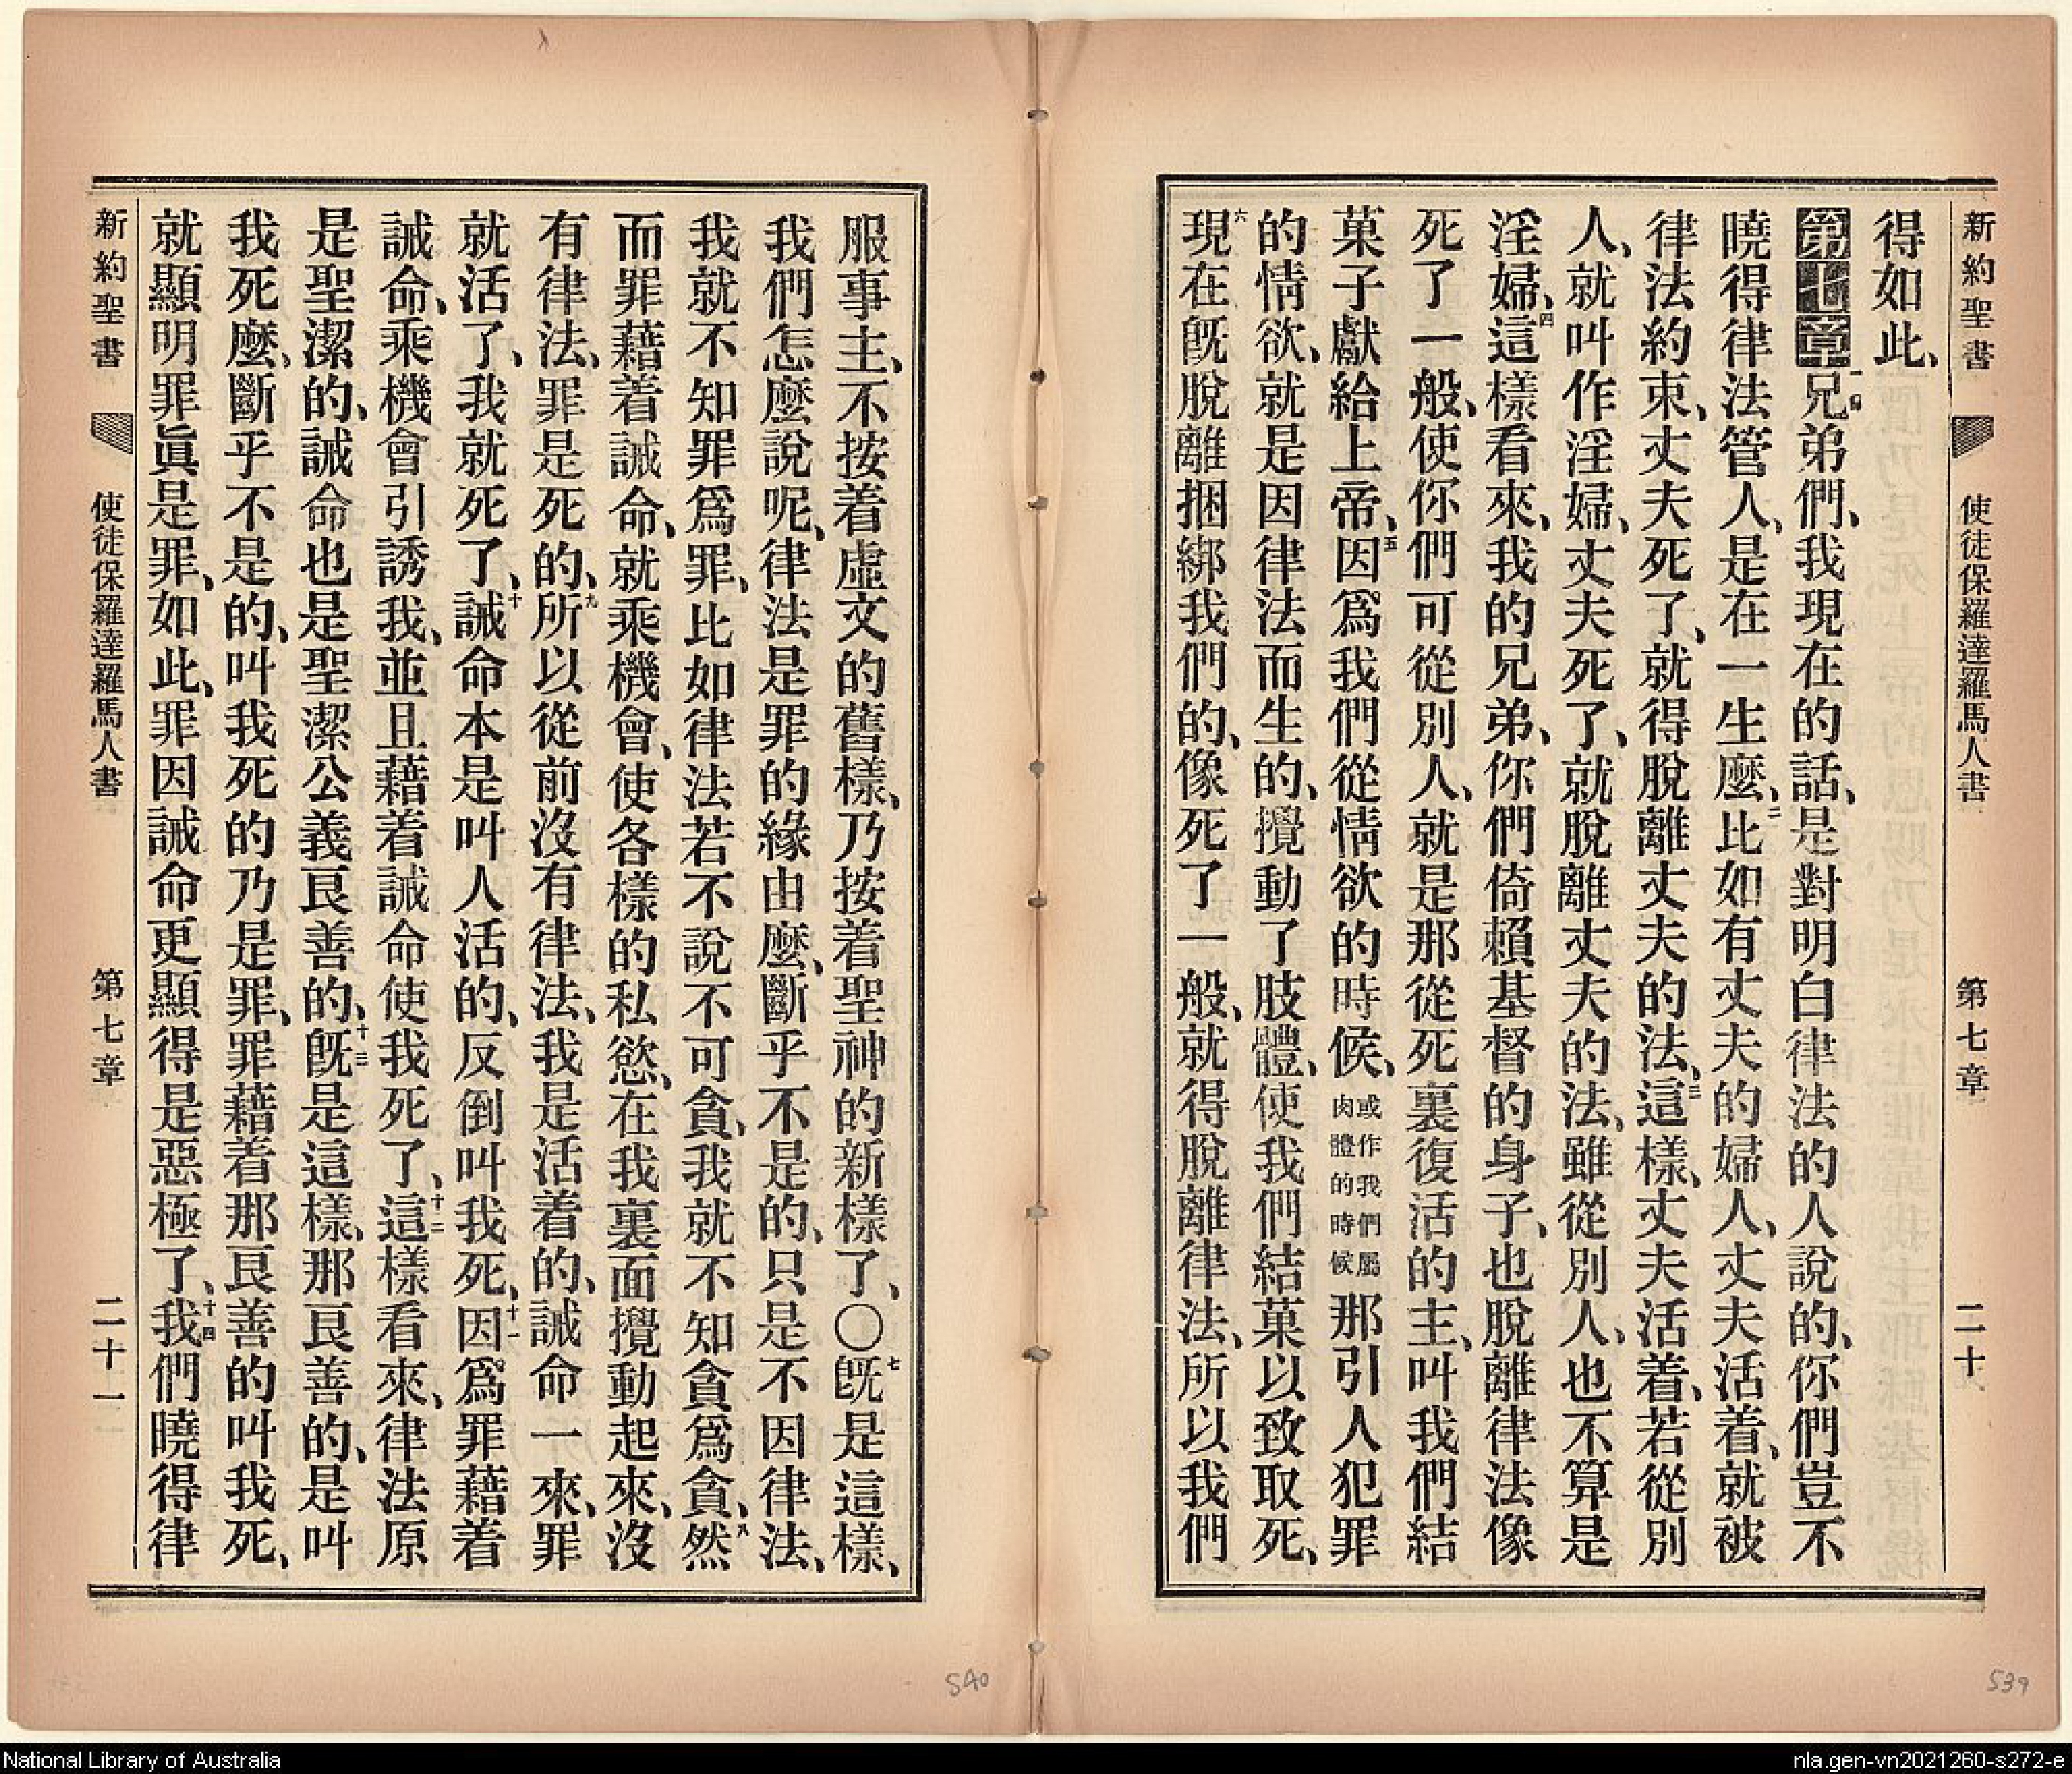 新約聖書 使徒保羅達羅馬人書 第七章 二十
得如此、
第七章 一兄弟們、我現在的話、是對明白律法的人說的、你們豈不
曉得律法管人、是在一生麽、二比如有丈夫的婦人、丈夫活着、就被
律法約束、丈夫死了、就得脫離丈夫的法、三這樣、丈夫活着、若從別
人、就叫作淫婦、丈夫死了、就脫離丈夫的法、雖從別人、也不算是
淫婦、四這樣看來、我的兄弟、你們倚賴基督的身子、也脫離律法像
死了一般、使你們可從別人、就是那從死裏復活的主、叫我們結
菓子獻給上帝、五因爲我們從情欲的時候、或作我們屬肉體的時候那引人犯罪
的情欲、就是因律法而生的、攪動了肢體、使我們結菓以致取死、
六現在旣脫離捆綁我們的、像死了一般、就得脫離律法、所以我們
服事主、不按着虛文的舊樣、乃按着聖神的新樣了、〇七旣是這樣、
我們怎麽說呢、律法是罪的緣由麽、斷乎不是的、只是不因律法、
我就不知罪爲罪、比如律法若不說不可貪、我就不知貪爲貪、八然
而罪藉着誡命、就乘機會、使各樣的私慾、在我裏面攪動起來、沒
有律法、罪是死的、九所以從前沒有律法、我是活着的、誡命一來、罪
就活了、我就死了、十誡命本是叫人活的、反倒叫我死、十一因爲罪藉着
誡命、乘機會引誘我、並且藉着誡命使我死了、十二這樣看來、律法原
是聖潔的、誡命也是聖潔公義良善的、十三旣是這樣、那良善的、是叫
我死麽、斷乎不是的、叫我死的乃是罪、罪藉着那良善的叫我死、
就顯明罪眞是罪、如此、罪因誡命更顯得是惡極了、十四我們曉得律
新約聖書 使徒保羅達羅馬人書 第七章 二十一
540
539
National Library of Australia
nla.gen-vn2021260-s272-e